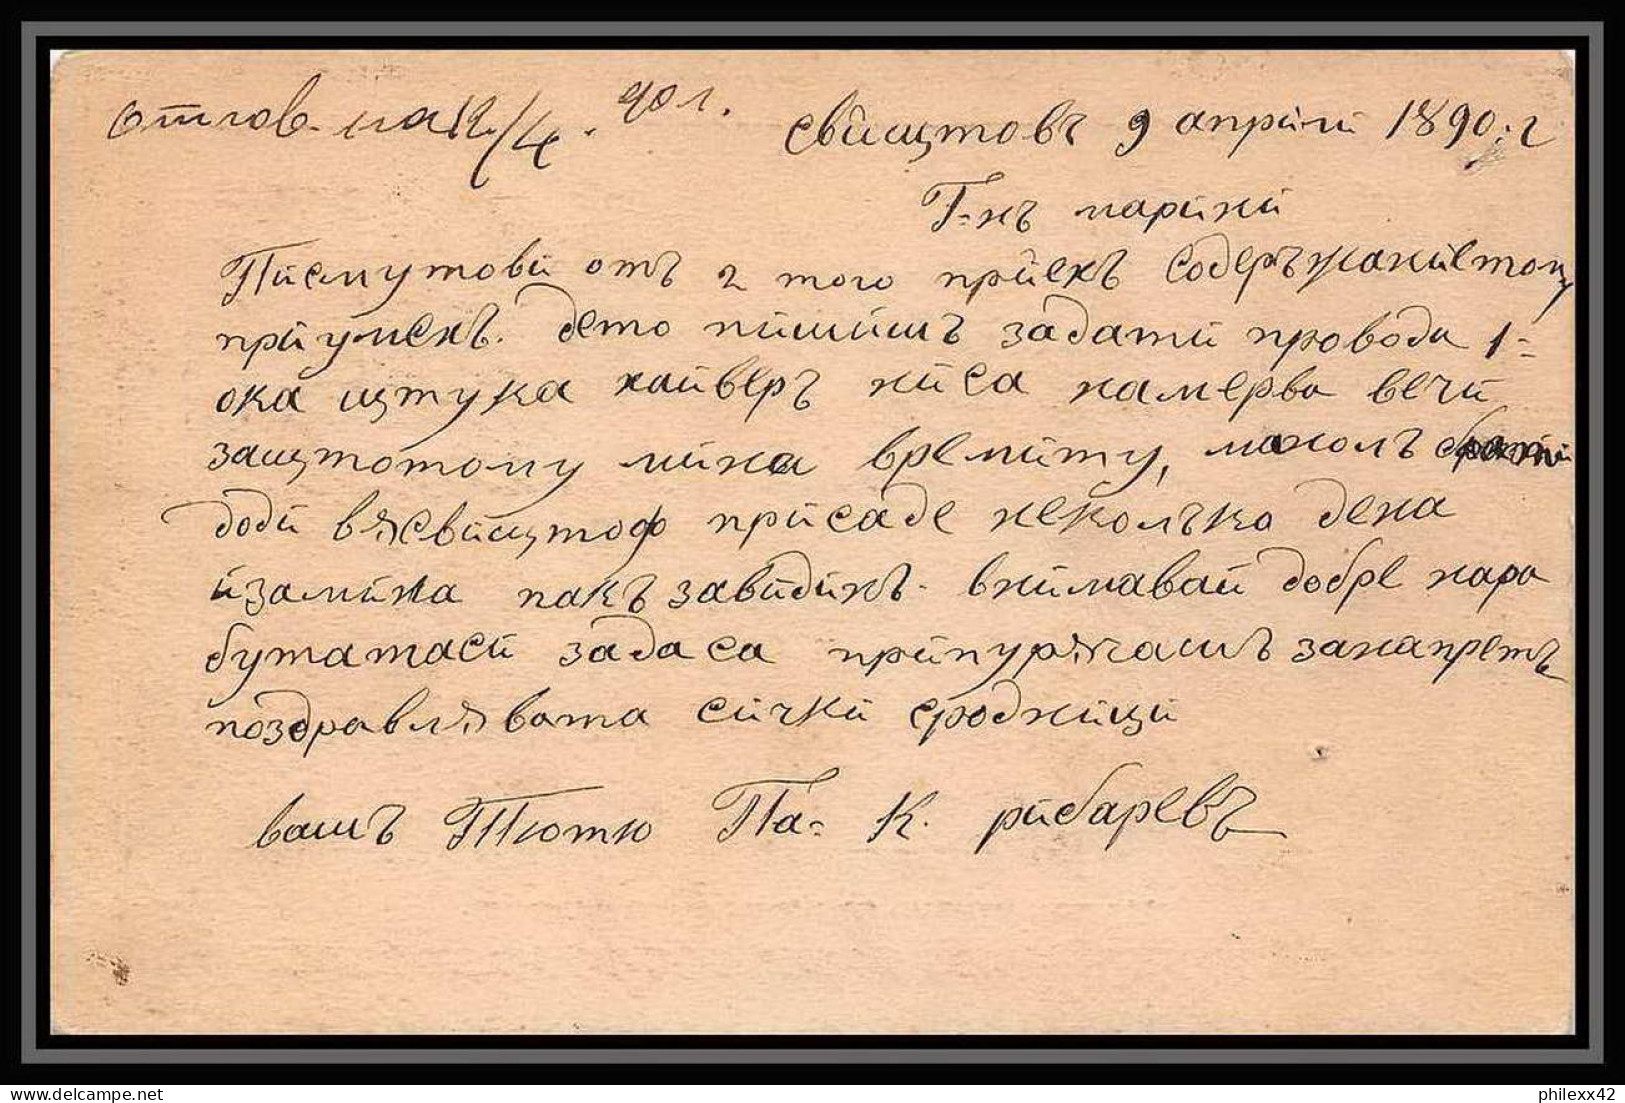 отгов. на 12/4. 90 л.
свйщтовъ 9 апрйлй 1890. г
Г-нъ марйнй
Пйсмутовй отъ 2 того прйехъ содеръжанйетому
прйумехъ. дето пйшйшъ задатй проводи 1-
ока щтука хайверъ нйса намерва вечй
защтотому мйна времйту, манолъ
додй въ свйщтоф прйсаде неколъко дена
йзамйна пакъ завйдйнъ. внймавай добре нара
бутатасй задаса прйпуръчашъ занапретъ
поздравлявата сйчкй сроднйцй
вашъ Тютю Па- К. рйбаревъ
philexx42